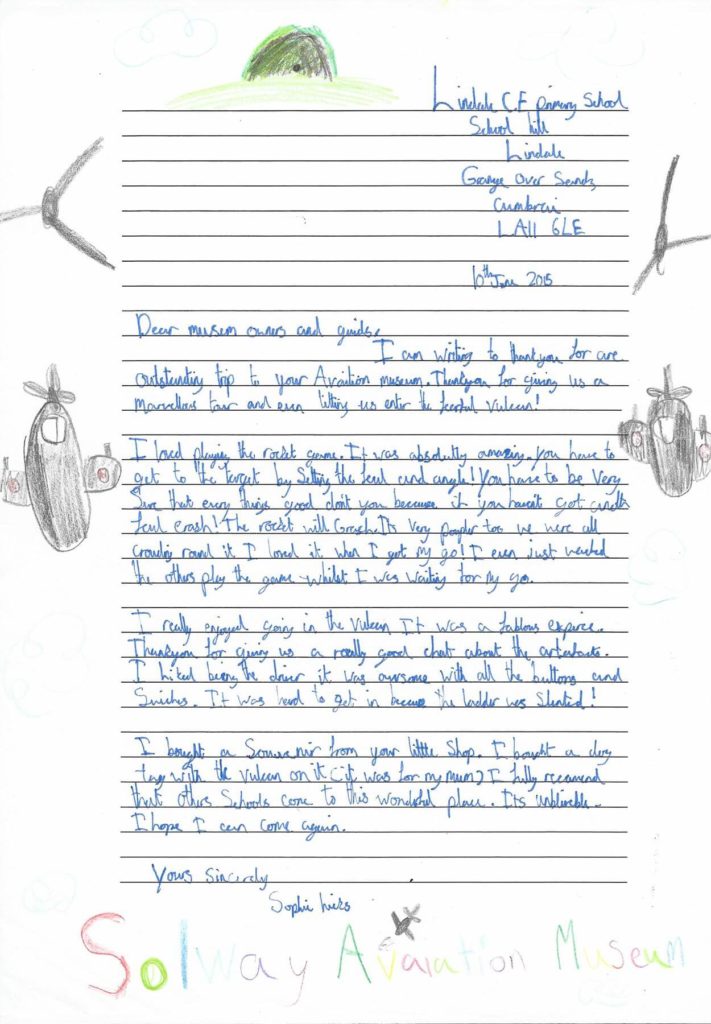 Lindale C.E primary School
School hill
Lindale
Grange Over Sands
Cumbrai
LA11 6LE
10th June 2015
Dear musem owners and guids,
I am writing to thankyou for are
outstanding trip to your Avaition museum. Thankyou for giving us a
marvellous tour and even letting us enter the fearful vulcan!
I loved playing the rocket game. It was absolutly amazing. you have to
get to the target by Setting the feul and angle! You have to be very
Sure that every things good don't you because if you haven't got
feul crash! The rocket will Crash. Its very too we were all
crowding round it I loved it when I got my go! I even just watched
the others play the game whilst I was waiting for my go.
I really enjoyed going in the vulcan It was a fablous expirce.
Thankyou for giving us a really good chat about the artafacts.
I liked being the driver it was awsome with all the buttons and
Swiches. It was hard to get in because the ladder was Slanted!
I bought a Souvenir from your little Shop. I bought a dog
tag with the vulcan on it (it was for my mum) I fully recomend
that others Schools come to this wonderful place. Its unblivable.
I hope I can come again.
Yours Sincerely
Sophie
Solway Avaiation Museum